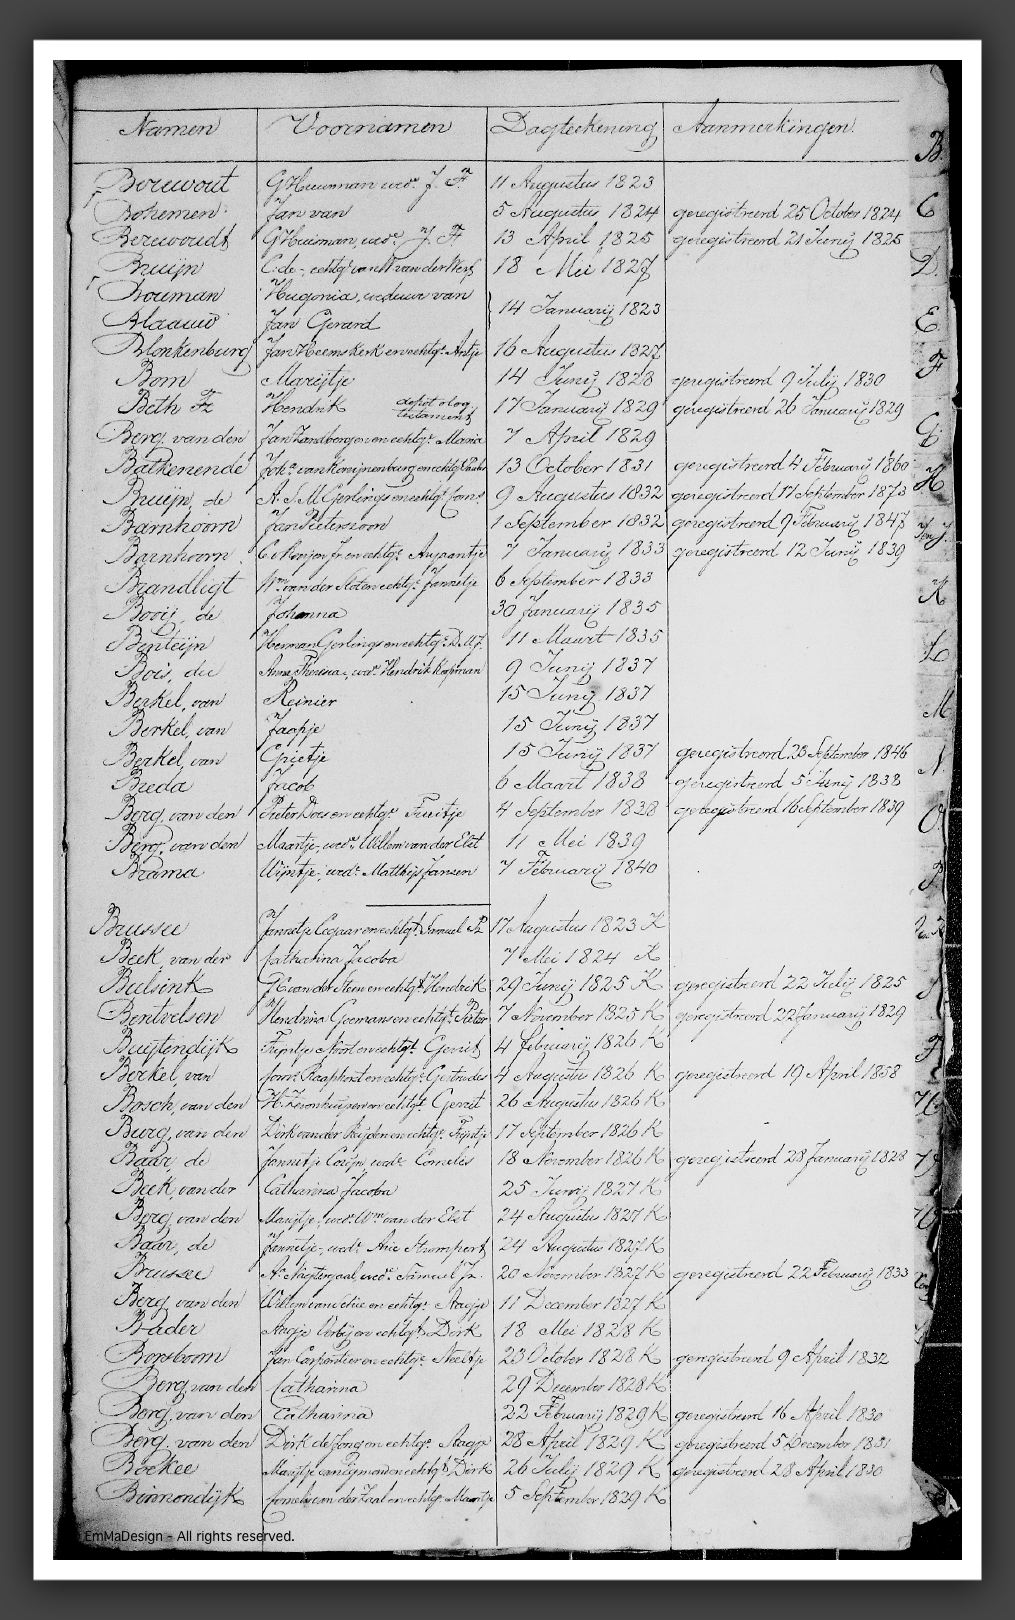 Namen Voornamen Dagteekening Aanmerkingen
B.
Berewout G Huurman wed.e J. Fz 11 Augustus 1823
Bohemen Jan van 5 Augustus 1824 geregistreerd 25 October 1824
C
Berewoudt G Huisman, wed.e J. Fz 13 April 1825 geregistreerd 21 Junij 1825
D.
Bruijn C. de, echtg.e van W van der Werf 18 Mei 1827
Bouman Hugonia, weduwe van
Blaauw Jan Gerard 14 Januarij 1823
E
Blonkenburg Jan Heemskerk en echtg.e Antje 16 Augustus 1827
F
Bom Marijtje 14 Junij 1828 geregistreerd 9 Julij 1830
Beth Fz Hendrik depot olog. testament 17 Januarij 1829 geregistreerd 26 Januarij 1829
G
Berg, van den Jan Zandbergen en echtg.e Maria 7 April 1829
Balkenende Joh.s van Konijnenburg en echtg.e 13 October 1831 geregistreerd 4 Februarij 1860
H
Bruijn, de A. S. M. Gerlings en echtg.t Corn.s 9 Augustus 1832 geregistreerd 17 September 1873
Barnhoorn Jan Pieterszoon 1 September 1832 geregistreerd 9 Februarij 1847
Barnhoorn C. Mooijen Jr. en echtg.e 7 Januarij 1833 geregistreerd 12 Junij 1839
Brandligt W.m van der Sloten echtg.e Jannetje 6 September 1833
K
Booij, de Johanna 30 Januarij 1835
Benteijn Herman Gerlings en echtg.e D. M. J. 11 Maart 1835
L
Bois, du Anna Theresia, wed.e Hendrik Koopman 9 Junij 1837
Berkel, van Reinier 15 Junij 1837
M
Berkel, van Jaapje 15 Junij 1837
Berkel, van Grietje 15 Junij 1837 geregistreerd 23 September 1846
N.
Breda Jacob 6 Maart 1838 geregistreerd 5 Junij 1838
Berg, van den Pieter Does en echtg.e Fruitje 4 September 1838 geregistreerd 16 September 1839
O
Berg, van den Maartje, wed.e Willem van der Elst 11 Mei 1839
Brama Wijntje, wed.e Matthijs Jansen 7 Februarij 1840
P.
Brussee Jannetje Cegaar en echtg.t Samuel Sz 17 Augustus 1823 K
Beek, van der Catharina Jacoba 7 Mei 1824 K
Bulsink G R van der Steen en echtg.t Hendrik 29 Junij 1825 K geregistreerd 22 Julij 1825
Bentvelsen Hendrina Goemans en echtg.t Pieter 7 November 1825 K geregistreerd 22 Januarij 1829
Buijtendijk Trijntje Noort en echtg.t Gerrit 4 februarij 1826 K
Berkel, van Corn.s Raaphorst en echtg.e Geertruides 4 Augustus 1826 K geregistreerd 19 April 1858
Bosch, van den H. Kroonhuijzen en echtg.t Gerrit 26 Augustus 1826 K
Burg, van den Dirk van der Heijden en echtg.e Trijntje 17 September 1826 K
Baar, de Jannetje Corijn, wed.e Cornelis 18 November 1826 K geregistreerd 28 Januarij 1828
Beek, van der Catharina Jacoba 25 Junij 1827 K
Berg, van den Marijtje, wed.e W.m van der Elst 24 Augustus 1827 K
Baar, de Jannetje, wed.e Arie Trompert 24 Augustus 1827 K
Brussee A.a Nagtegaal, wed.e Samuel Jz. 20 November 1827 K geregistreerd 22 Februarij 1833
Berg, van den Willem van Schie en echtg.e Aagje 11 December 1827 K
Bader Aagje Verbij en echtg.t Dirk 18 Mei 1828 K
Borsboom Jan Carpentier en echtg.e Neeltje 23 October 1828 K geregistreerd 9 April 1832
Berg, van den Catharina 29 December 1828 K
Berg, van den Catharina 22 Februarij 1829 K geregistreerd 16 April 1830
Berg, van den Dirk de Jong en echtg.e Aagje 28 April 1829 K geregistreerd 5 December 1831
Boekee Marijtje van Egmond en echtg.t Dirk 26 Julij 1829 K geregistreerd 28 April 1830
Binnendijk Cornelis van der Zaal en echtg.e Maartje 5 September 1829 K
EmMaDesign - All rights reserved.